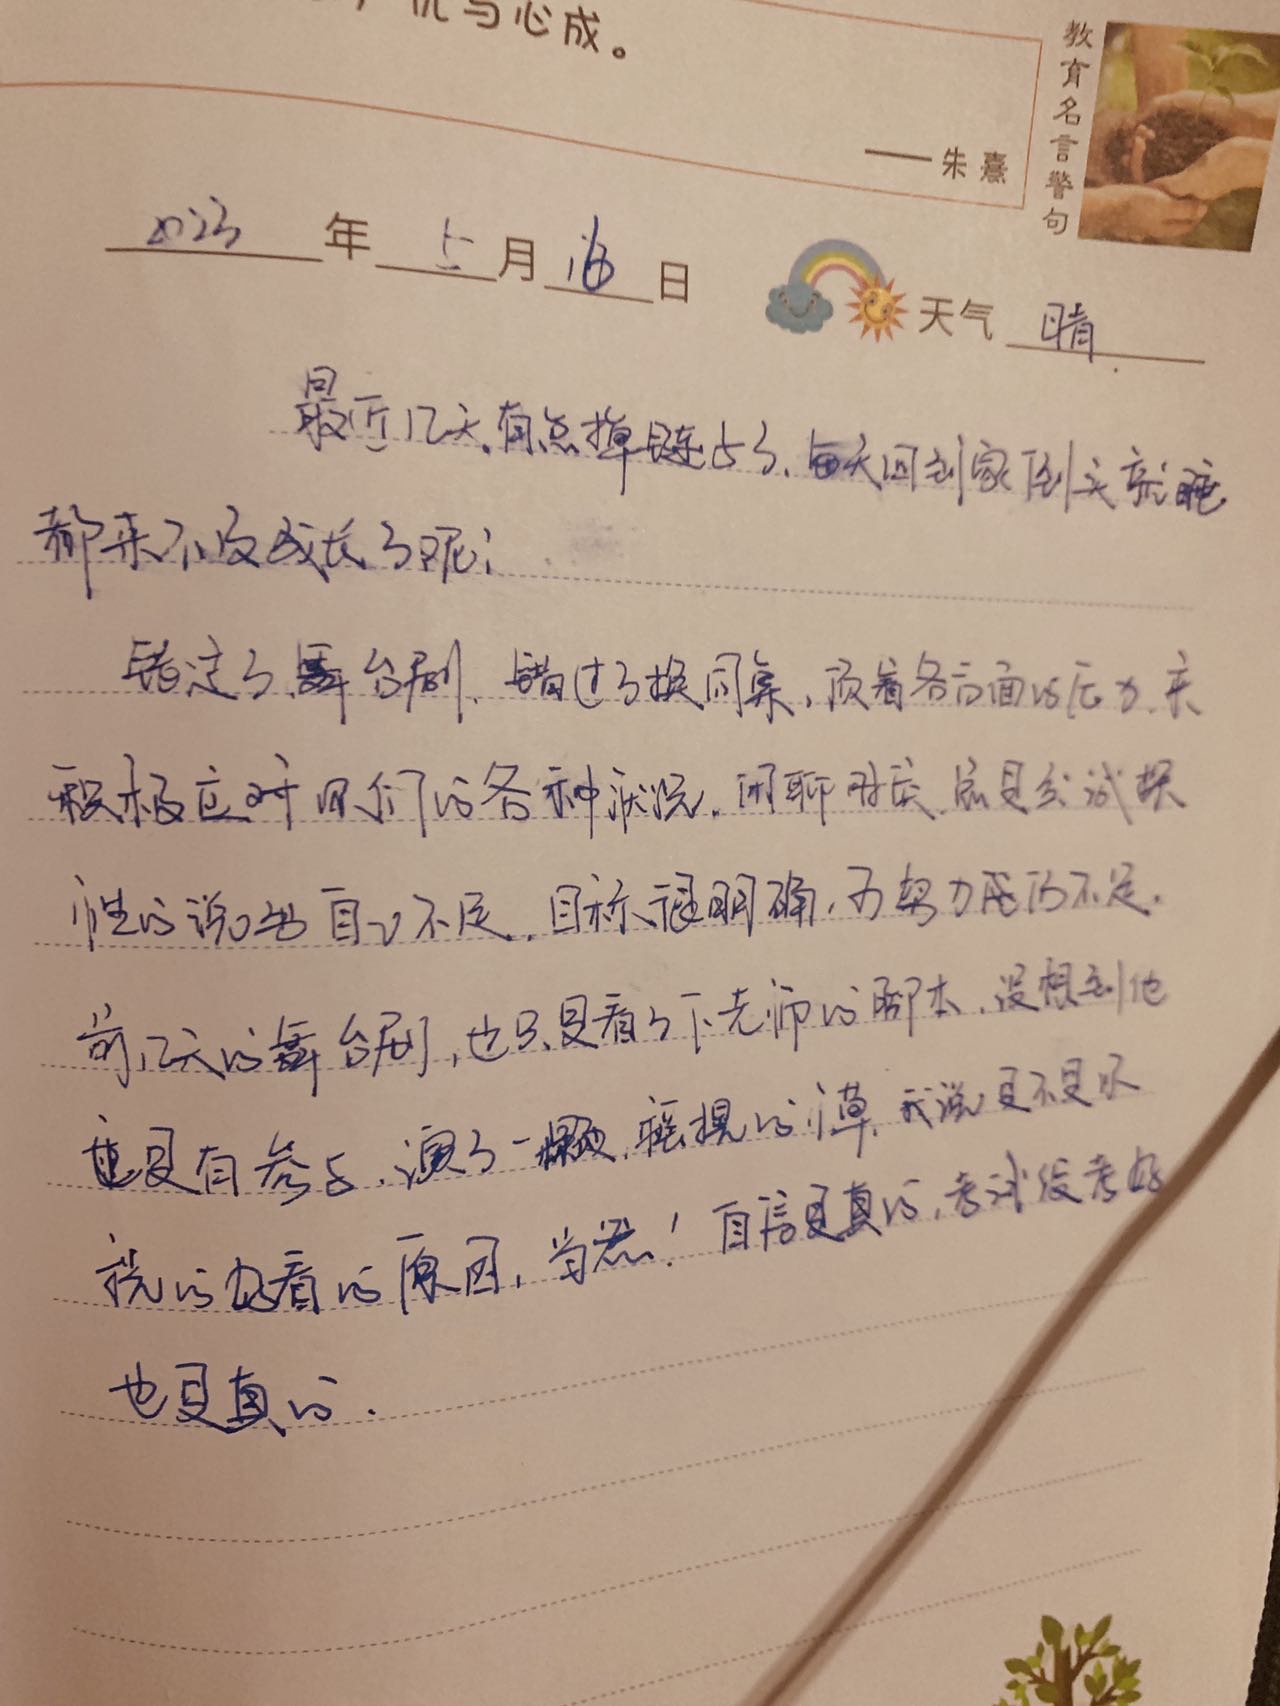 与心成。
——朱熹
教育名言警句
2023年5月16日 天气 晴
最近几天,有点掉链子了,每天回到家倒头就睡
都来不及成长了呢;
错过了舞台剧,错过了换同桌,顶着各方面的压力,来
积极应对你们的各种状况,闲聊时候,总是会试探
性的说出自己不足,目标很明确,不努力
前几天的舞台剧,也只是看了下老师的脚本,没想到他
也是有参与,演了一颗,摇摆的小草,我说是不是
我的好看的原因,当然!自信是真的,考试没考好
也是真的.